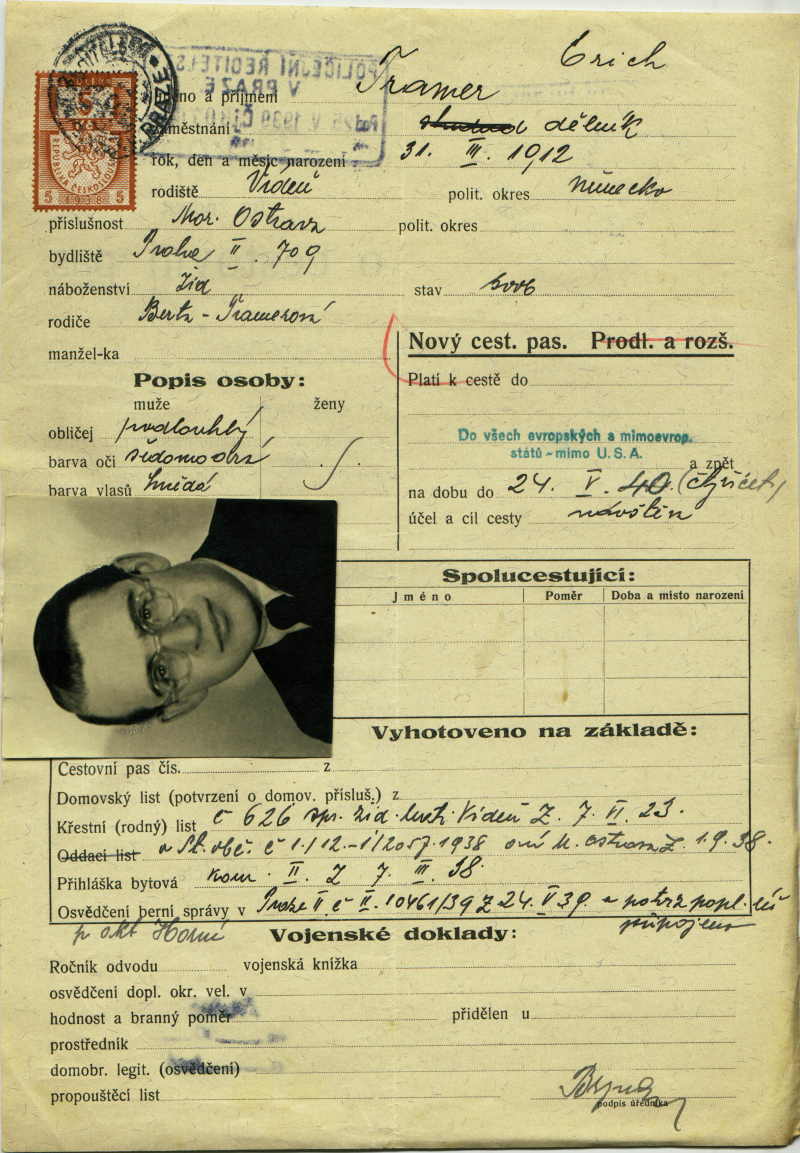 Erich
Tramer
Jméno a příjmení
POLICEJNÍ ŘEDITELS
V PRAZE
zaměstnání student dělník
rok, den a měsíc narození 31. III. 1912
rodiště Vídeň polit. okres Německo
příslušnost Mor. Ostrava polit. okres
bydliště Praha II. 709
náboženství žid stav svob
rodiče Berta - Tramerová
manžel-ka
REPUBLIKA ČESKOSLOVENSKÁ
5 1938 5
PRAZE
Nový cest. pas. Prodl. a rozš.
Platí k cestě do
Do všech evropských a mimoevrop.
států - mimo U.S.A.
a zpět
na dobu do 24. V. 40. (čtyřicet)
účel a cíl cesty návštěva
Popis osoby:
muže ženy
obličej podlouhlý
barva očí šedomodrá
barva vlasů hnědá
Spolucestující:
Jméno Poměr Doba a místo narození
Vyhotoveno na základě:
Cestovní pas čís. z
Domovský list (potvrzení o domov. přísluš.) z
Křestní (rodný) list č 626 spr. žid. Vídeň Z. 7. VI. 23.
Oddací list St. obč. č 1938 Z 1.9.38.
Přihláška bytová kom. II. Z 7. III. 38.
Osvědčení berní správy v Praze II č II. 10461/39 Z 24. V 39. a potvrz popl.
připojeno
Vojenské doklady:
Ročník odvodu vojenská knížka
osvědčení dopl. okr. vel. v
hodnost a branný poměr přidělen u
prostředník
domobr. legit. (osvědčení)
propouštěcí list
podpis úředníka